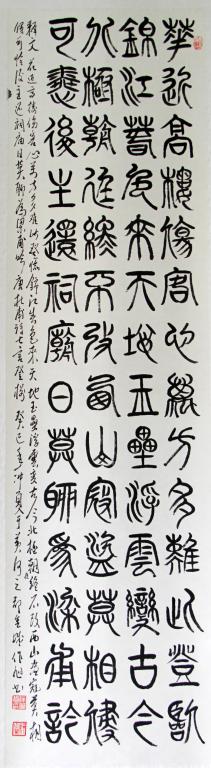 華近高樓傷客心萬方多難此登臨
錦江春色來天地玉壘浮雲變古今
北極朝廷終不改西山寇盜莫相侵
可憐後主還祠廟日莫聊為梁甫吟
釋文 花近高樓傷客心萬方多難此登臨錦江春色來天地玉壘浮雲變古今北極朝廷終不改西山寇盜莫相
侵可憐後主还祠庙日莫聊為梁甫吟 唐杜甫詩七言登樓 癸巳年仲夏于黄河之都金城作旭書